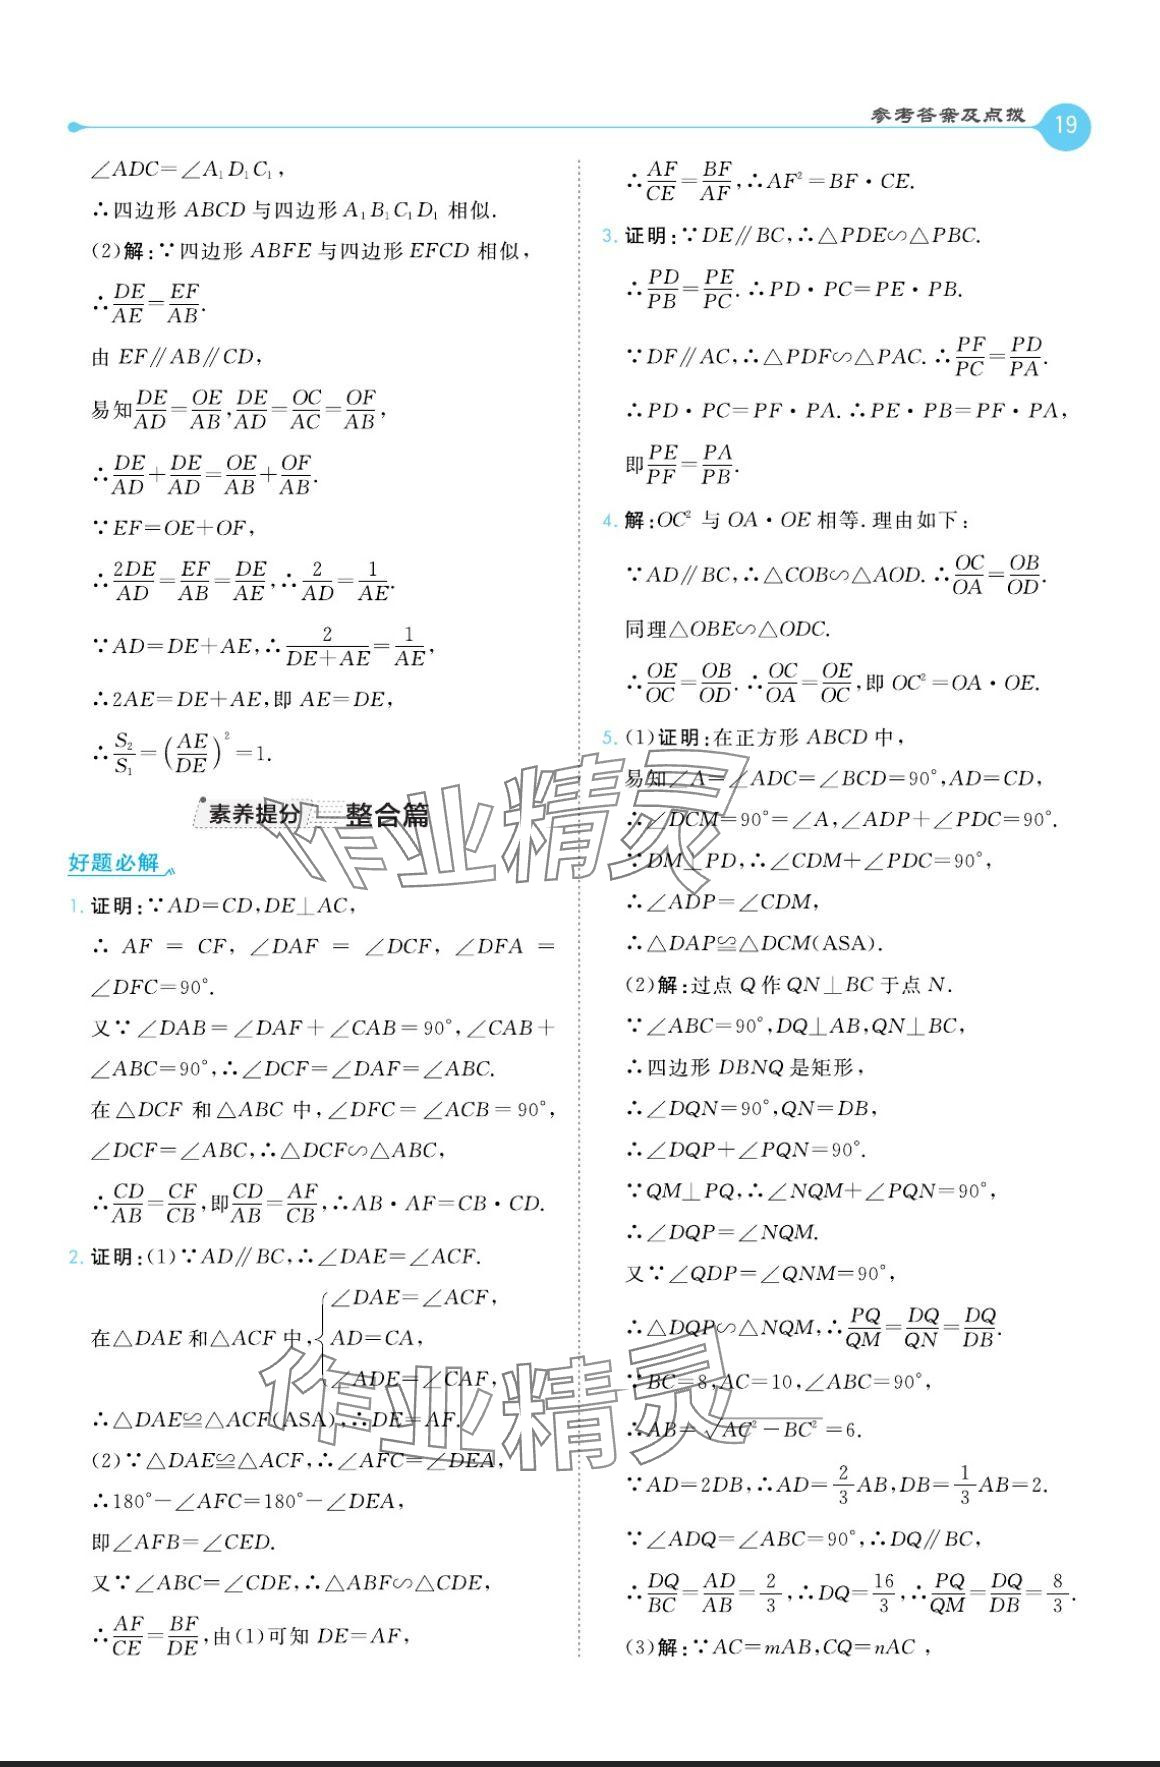 参考答案及点拨 19
∠ADC=∠A₁D₁C₁,
∴四边形 ABCD 与四边形 A₁B₁C₁D₁ 相似.
(2)解:∵四边形 ABFE 与四边形 EFCD 相似,
∴DE/AE=EF/AB.
由 EF∥AB∥CD,
易知DE/AD=OE/AB,DE/AD=OC/AC=OF/AB,
∴DE/AD+DE/AD=OE/AB+OF/AB.
∵EF=OE+OF,
∴2DE/AD=EF/AB=DE/AE,∴2/AD=1/AE.
∵AD=DE+AE,∴2/(DE+AE)=1/AE,
∴2AE=DE+AE,即 AE=DE,
∴S₂/S₁=(AE/DE)²=1.
素养提分 整合篇
好题必解
1. 证明:∵AD=CD,DE⊥AC,
∴ AF = CF, ∠DAF = ∠DCF, ∠DFA =
∠DFC=90°.
又∵∠DAB=∠DAF+∠CAB=90°,∠CAB+
∠ABC=90°,∴∠DCF=∠DAF=∠ABC.
在△DCF 和△ABC 中,∠DFC=∠ACB=90°,
∠DCF=∠ABC,∴△DCF∽△ABC,
∴CD/AB=CF/CB,即CD/AB=AF/CB,∴AB·AF=CB·CD.
2. 证明:(1)∵AD∥BC,∴∠DAE=∠ACF.
在△DAE 和△ACF 中,{∠DAE=∠ACF,
AD=CA,
∠ADE=∠CAF,
∴△DAE≌△ACF(ASA),∴DE=AF.
(2)∵△DAE≌△ACF,∴∠AFC=∠DEA,
∴180°-∠AFC=180°-∠DEA,
即∠AFB=∠CED.
又∵∠ABC=∠CDE,∴△ABF∽△CDE,
∴AF/CE=BF/DE,由(1)可知 DE=AF,
∴AF/CE=BF/AF,∴AF²=BF·CE.
3. 证明:∵DE∥BC,∴△PDE∽△PBC.
∴PD/PB=PE/PC.∴PD·PC=PE·PB.
∵DF∥AC,∴△PDF∽△PAC.∴PF/PC=PD/PA.
∴PD·PC=PF·PA.∴PE·PB=PF·PA,
即PE/PF=PA/PB.
4. 解:OC²与 OA·OE 相等.理由如下:
∵AD∥BC,∴△COB∽△AOD.∴OC/OA=OB/OD.
同理△OBE∽△ODC.
∴OE/OC=OB/OD.∴OC/OA=OE/OC,即 OC²=OA·OE.
5. (1)证明:在正方形 ABCD 中,
易知∠A=∠ADC=∠BCD=90°,AD=CD,
∴∠DCM=90°=∠A,∠ADP+∠PDC=90°.
∵DM⊥PD,∴∠CDM+∠PDC=90°,
∴∠ADP=∠CDM,
∴△DAP≌△DCM(ASA).
(2)解:过点 Q 作 QN⊥BC 于点 N.
∵∠ABC=90°,DQ⊥AB,QN⊥BC,
∴四边形 DBNQ 是矩形,
∴∠DQN=90°,QN=DB,
∴∠DQP+∠PQN=90°.
∵QM⊥PQ,∴∠NQM+∠PQN=90°,
∴∠DQP=∠NQM.
又∵∠QDP=∠QNM=90°,
∴△DQP∽△NQM,∴PQ/QM=DQ/QN=DQ/DB.
∵BC=8,AC=10,∠ABC=90°,
∴AB=√(AC²-BC²)=6.
∵AD=2DB,∴AD=2/3AB,DB=1/3AB=2.
∵∠ADQ=∠ABC=90°,∴DQ∥BC,
∴DQ/BC=AD/AB=2/3,∴DQ=16/3,∴PQ/QM=DQ/DB=8/3.
(3)解:∵AC=mAB,CQ=nAC,
作业精灵
作业精灵